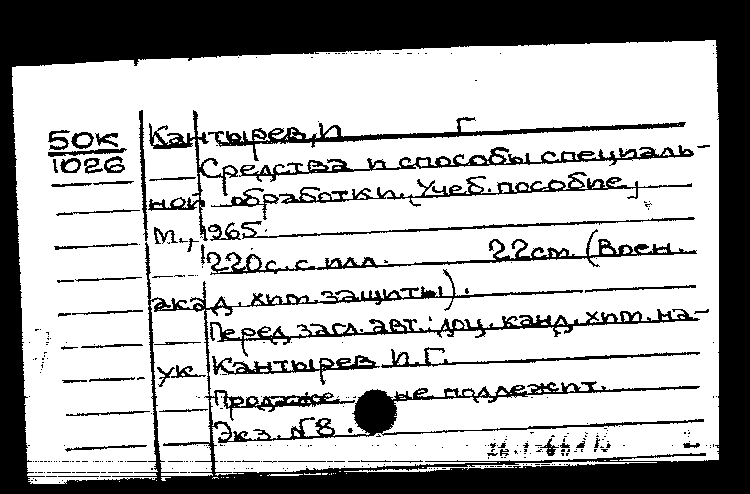 50К
1026
Кантырев, И Г
Средства и способы специаль-
ной обработки. [Учеб. пособие]
М., 1965
220 с. с илл. 22 см. (Воен.
акад. хим. защиты).
Перед загл. авт.: доц. канд. хим. на-
ук Кантырев И.Г.
Продаже не подлежит.
Экз. №8.